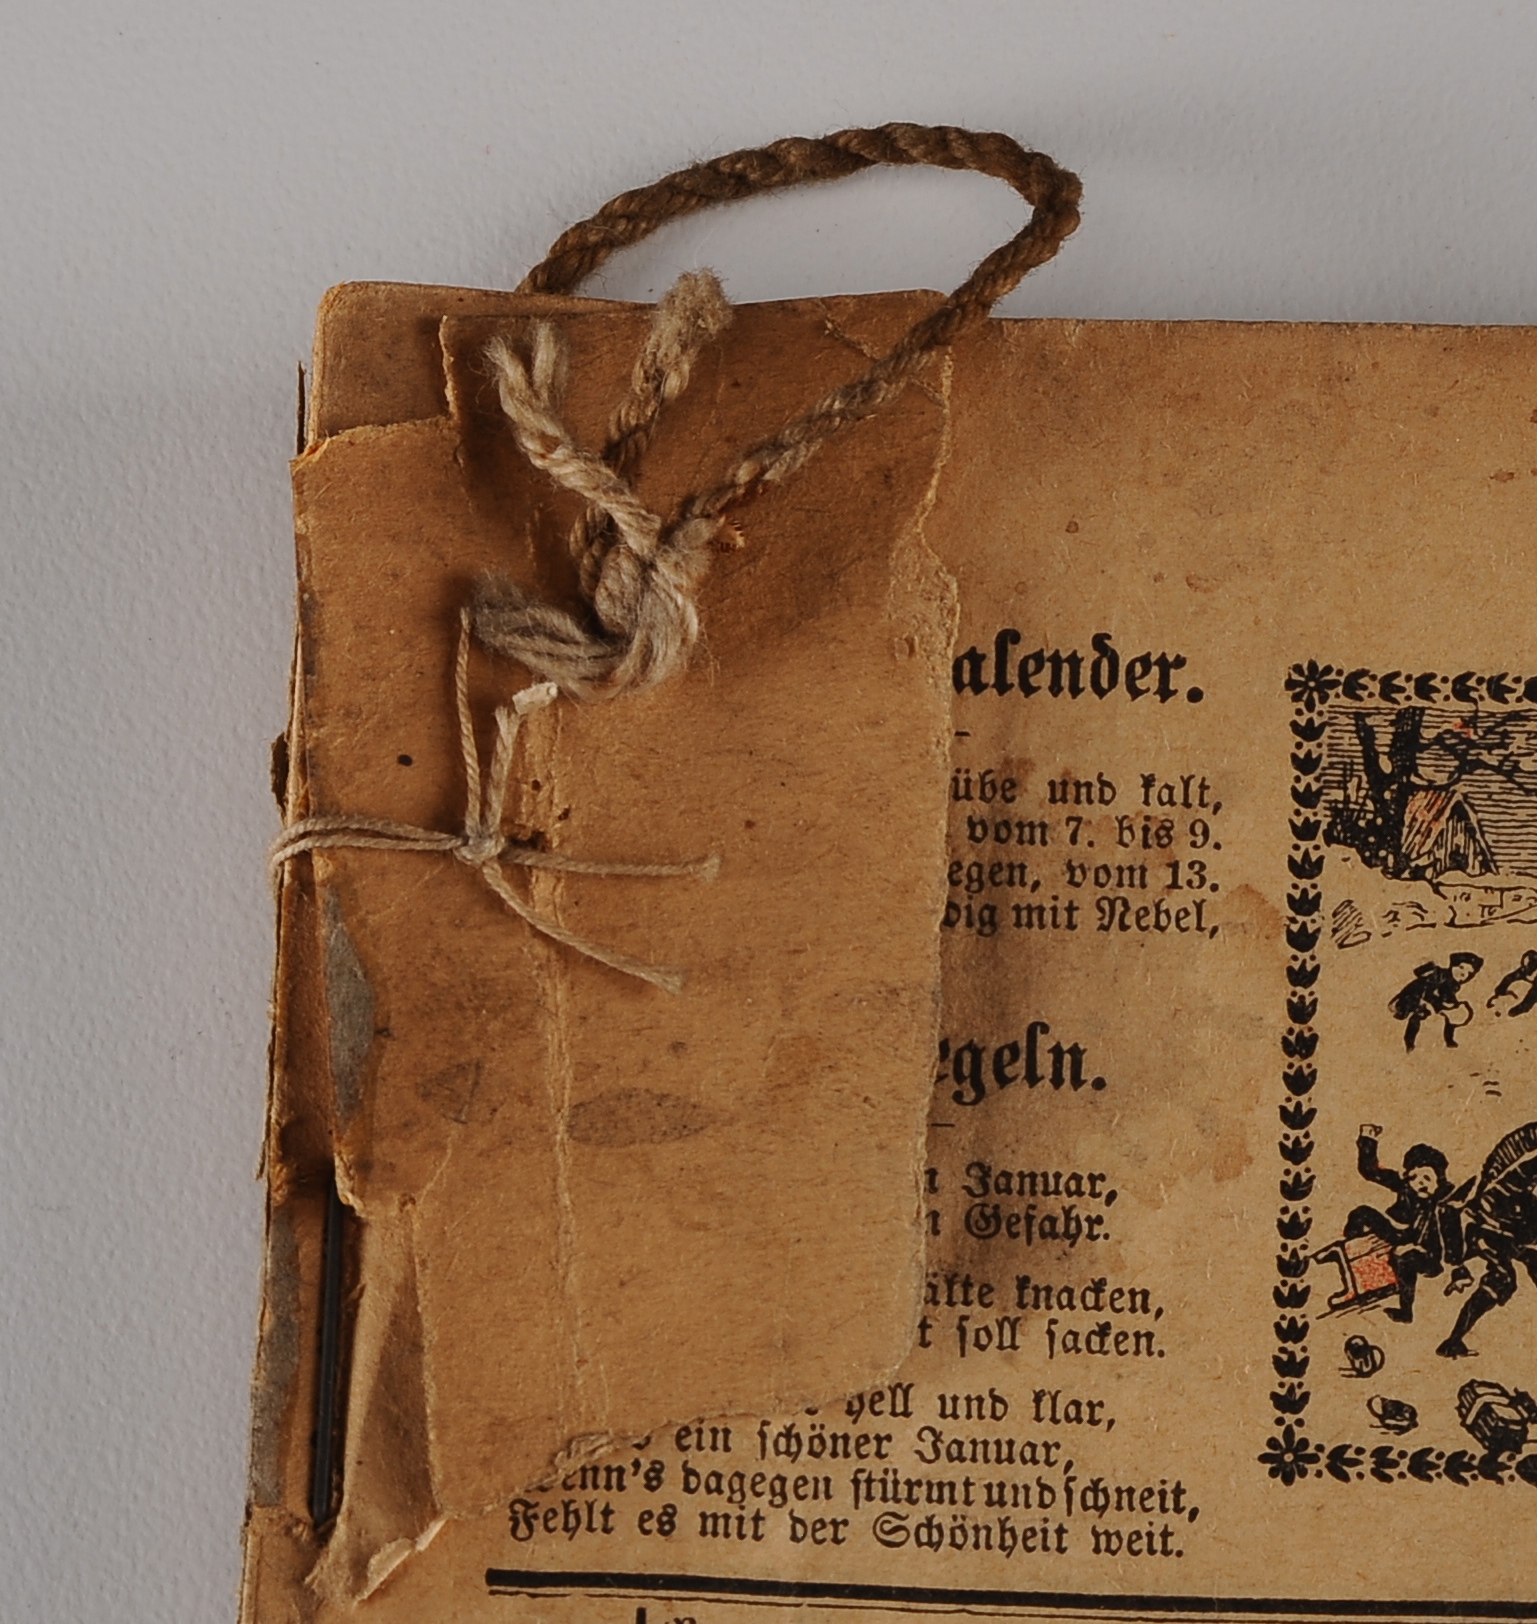 alender.
übe und kalt,
vom 7. bis 9.
egen, vom 13.
dig mit Nebel,
egeln.
n Januar,
n Gefahr.
älte knacken,
t soll sacken.
hell und klar,
ein schöner Januar,
Wenn's dagegen stürmt und schneit,
Fehlt es mit der Schönheit weit.